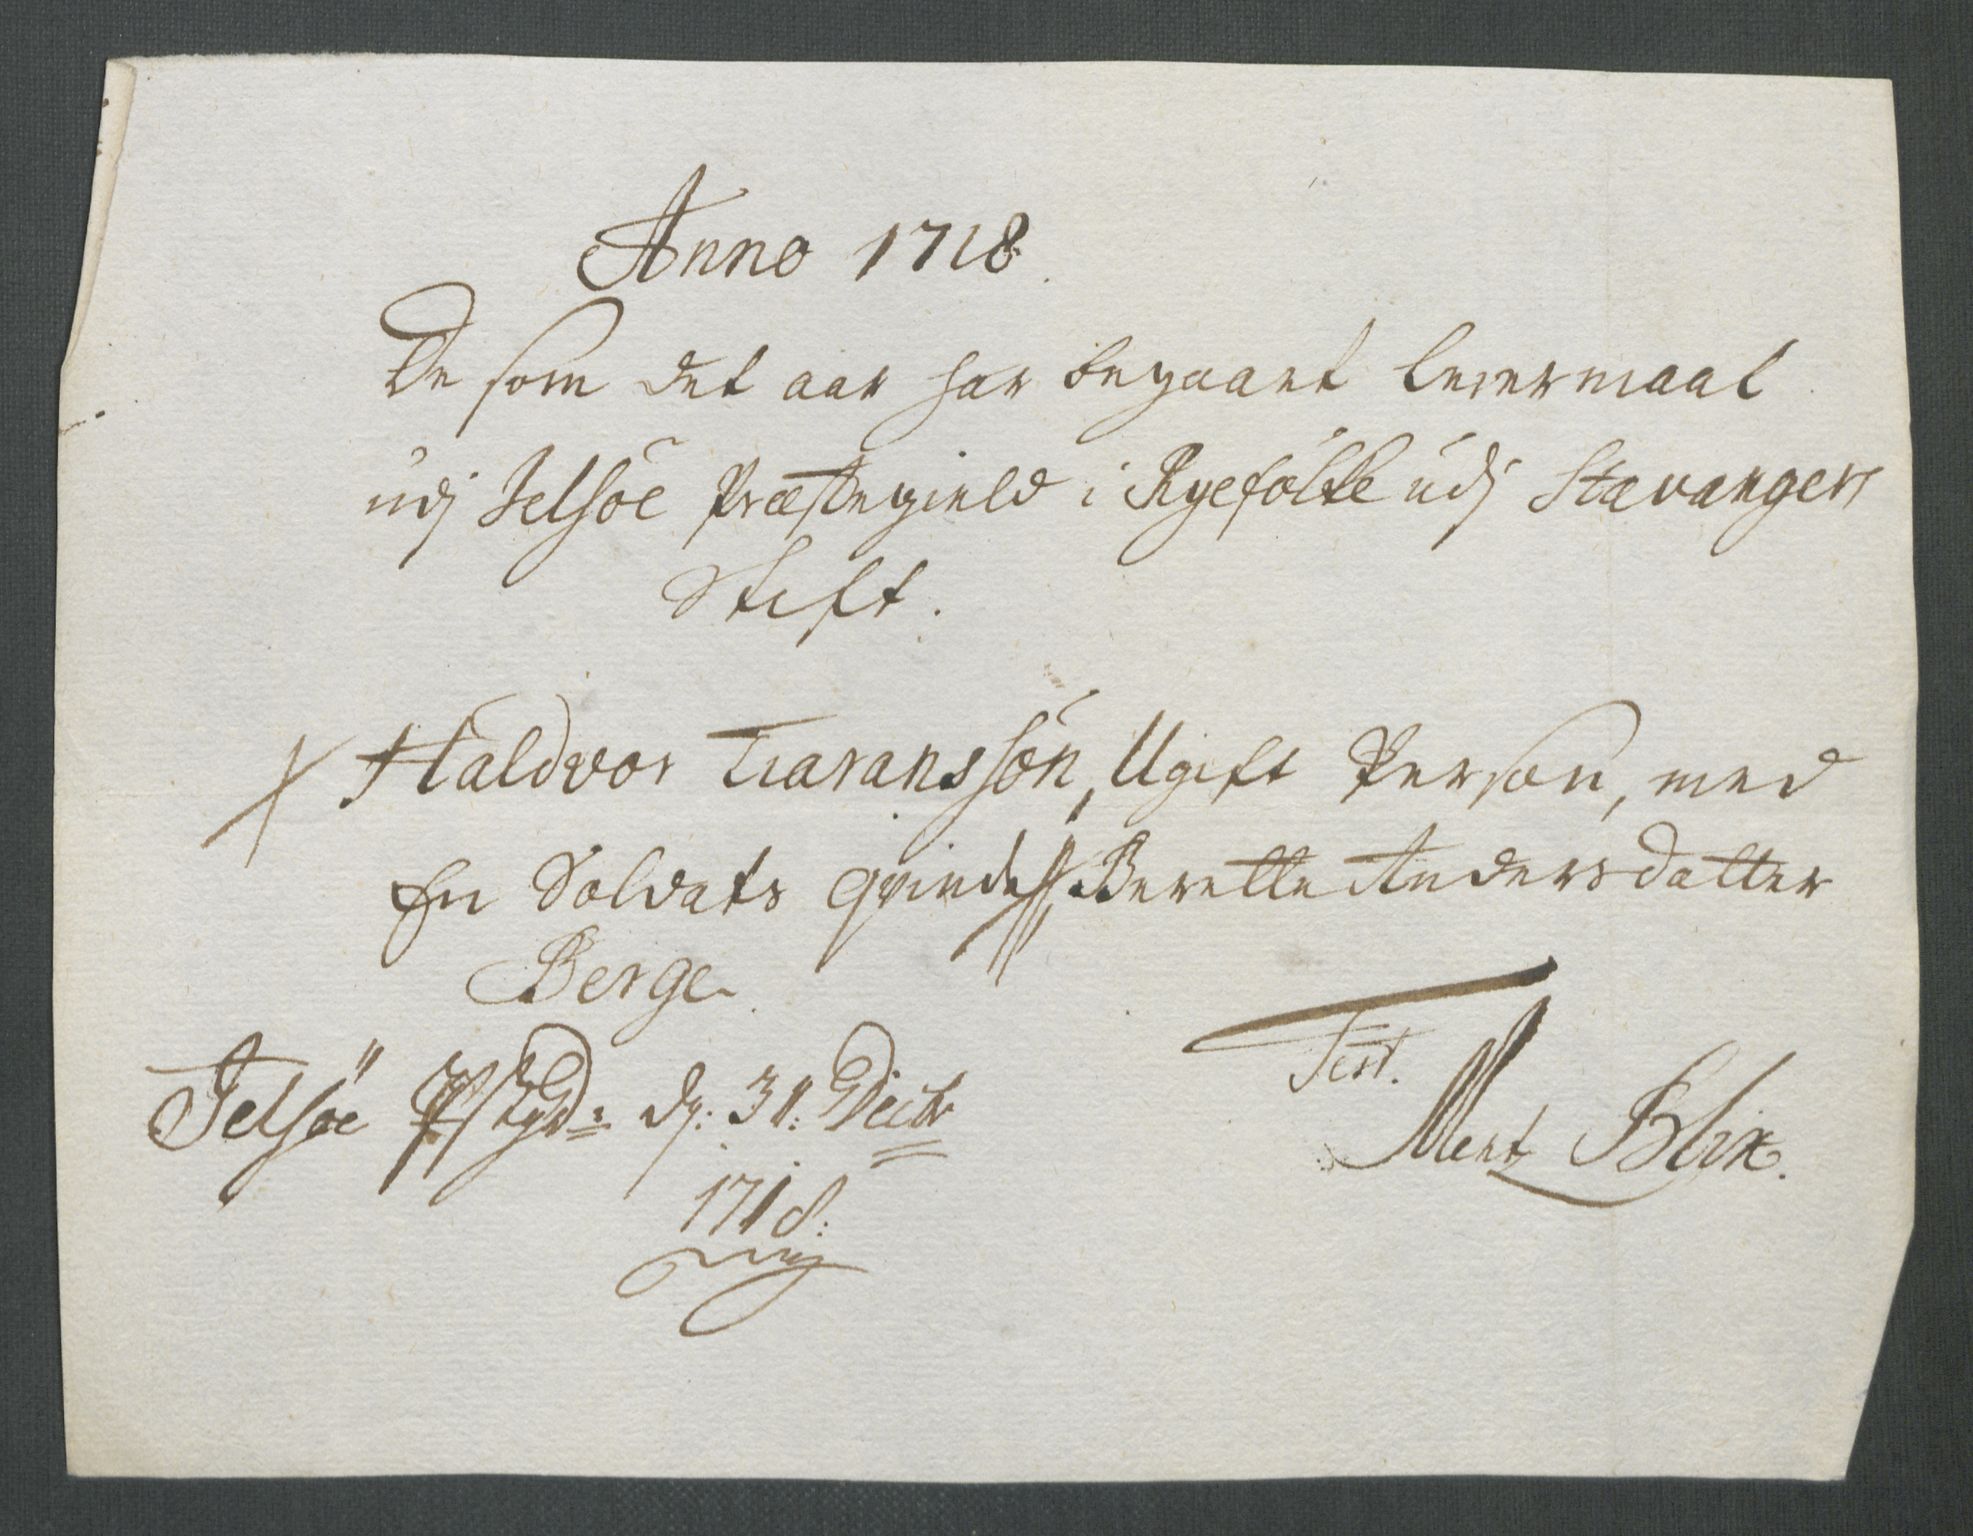 Anno 1718.
De som det aar har begaaet leiermaal
udj Jelsöe Præstegield i Ryefölke udj Stavanger
Stift.
Haldvor Tiaranssön, Ugift Person, med
En Soldats qvinde, Berette Andersdatter
Berge
Jelsöe dj: 31: Decbr
1718:
Test.
Ment Blix.